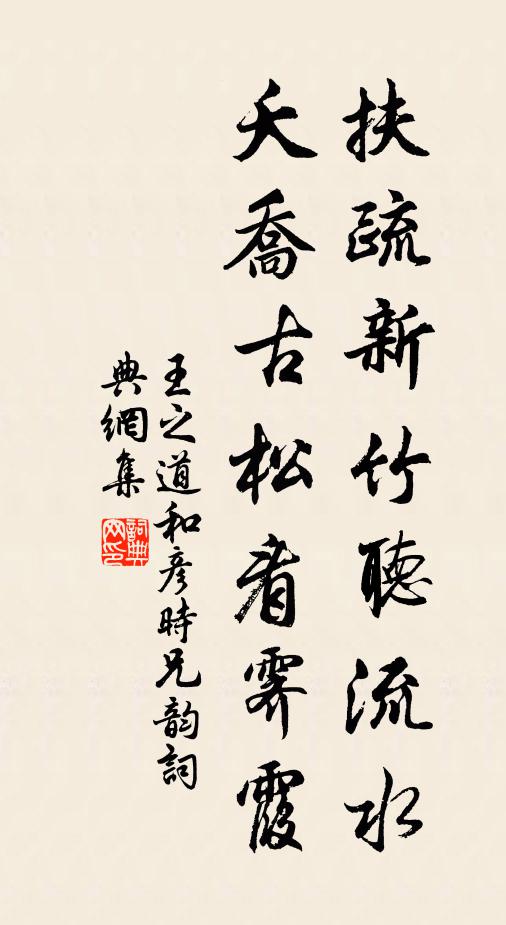 扶疏新竹聽流水
夭喬古松看霽霞
王之道和彥時兄韵詞
典網集
詞典
网印